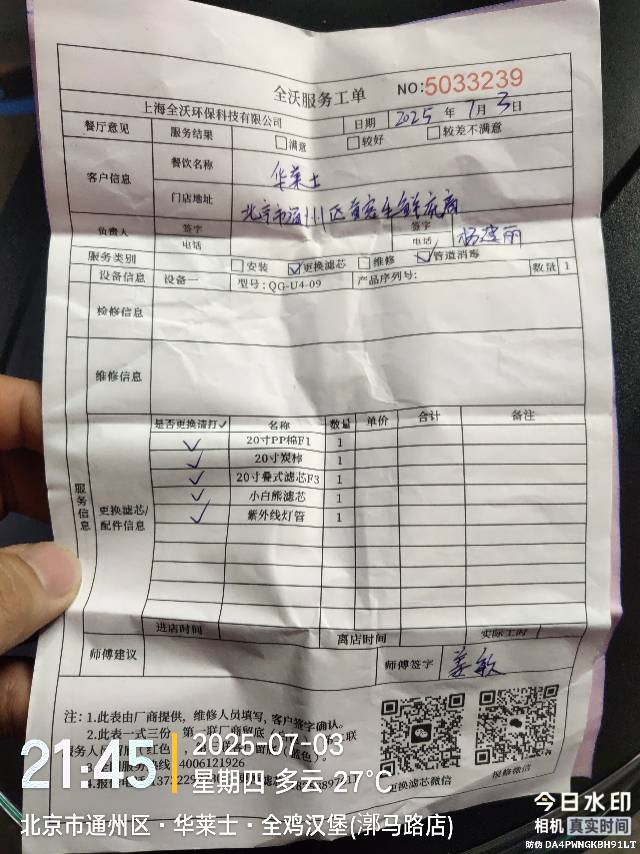 全沃服务工单 NO:5033239
上海全沃环保科技有限公司 日期 2025 年 7 月 3 日
餐厅意见 服务结果 □满意 □较好 □较差不满意
客户信息 餐饮名称 华莱士
门店地址 北京市通州区
负责人 签字 签字
电话 电话
服务类别 □安装 ☑更换滤芯 □维修 ☑管道消毒
设备信息 设备一 型号:QG-U4-09 产品序列号: 数量 1
检修信息
维修信息
服务信息
更换滤芯/配件信息
是否更换请打✓ 名称 数量 单价 合计 备注
✓ 20寸PP棉F1 1
✓ 20寸炭棒 1
✓ 20寸叠式滤芯F3 1
✓ 小白熊滤芯 1
✓ 紫外线灯管 1
进店时间 离店时间 实际工时
师傅建议 师傅签字 姜敏
注: 1.此表由厂商提供, 维修人员填写, 客户签字确认。
2.此表一式三份
服务热线 4006121926
更换滤芯微信 报修微信
21:45
2025-07-03
星期四 多云 27°C
北京市通州区·华莱士·全鸡汉堡(漷马路店)
今日水印
相机 真实时间
防伪 DA4PWNGKBH91LI